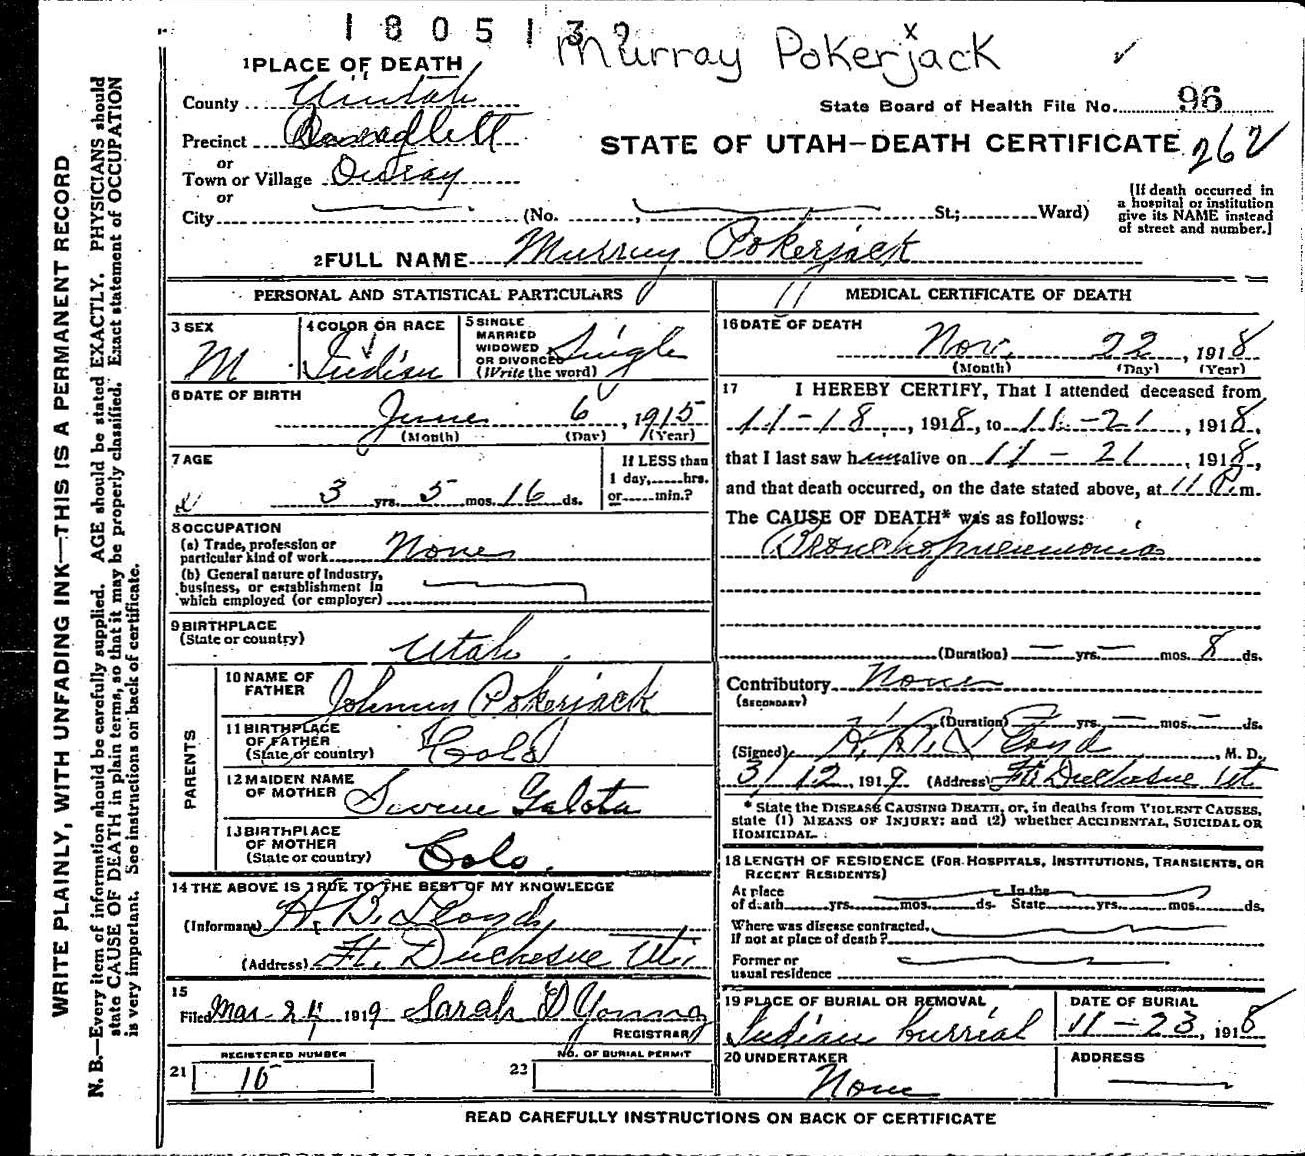 1805132
Murray Pokerjack x ✓
1 PLACE OF DEATH
County Uintah
State Board of Health File No. 96
Precinct
STATE OF UTAH—DEATH CERTIFICATE 262
or
Town or Village Ouray
or
City (No. , St.; Ward)
[If death occurred in
a hospital or institution
give its NAME instead
of street and number.]
2 FULL NAME Murray Pokerjack
PERSONAL AND STATISTICAL PARTICULARS
3 SEX
M
4 COLOR OR RACE
Indian
5 SINGLE
MARRIED
WIDOWED
OR DIVORCED
(Write the word)
Single
6 DATE OF BIRTH
June 6, 1915
(Month) (Day) (Year)
7 AGE
3 yrs. 5 mos. 16 ds.
If LESS than
1 day,......hrs.
or......min.?
8 OCCUPATION
(a) Trade, profession or
particular kind of work None
(b) General nature of Industry,
business, or establishment in
which employed (or employer)
9 BIRTHPLACE
(State or country)
Utah
PARENTS
10 NAME OF
FATHER
Johnny Pokerjack
11 BIRTHPLACE
OF FATHER
(State or country)
Colo
12 MAIDEN NAME
OF MOTHER
Galota
13 BIRTHPLACE
OF MOTHER
(State or country)
Colo.
14 THE ABOVE IS TRUE TO THE BEST OF MY KNOWLEDGE
(Informant) H. B. Lloyd
(Address) Ft. Duchesne Ut.
15
Filed Mar 24 1919 Sarah D Young
REGISTRAR
REGISTERED NUMBER
21 15
NO. OF BURIAL PERMIT
23
11 MEDICAL CERTIFICATE OF DEATH
16 DATE OF DEATH
Nov. 22, 1918
(Month) (Day) (Year)
17 I HEREBY CERTIFY, That I attended deceased from
11-18, 1918, to 11-21, 1918,
that I last saw him alive on 11-21, 1918,
and that death occurred, on the date stated above, at 11 P.m.
The CAUSE OF DEATH* was as follows:
Bronchopneumonia
(Duration) — yrs. — mos. 8 ds.
Contributory None
(SECONDARY)
(Duration) — yrs. — mos. — ds.
(Signed) H. B. Lloyd, M. D.
3/12, 1919 (Address) Ft Duchesne Ut
* State the DISEASE CAUSING DEATH, or, in deaths from VIOLENT CAUSES,
state (1) MEANS OF INJURY; and (2) whether ACCIDENTAL, SUICIDAL OR
HOMICIDAL.
18 LENGTH OF RESIDENCE (FOR HOSPITALS, INSTITUTIONS, TRANSIENTS, OR
RECENT RESIDENTS)
At place In the
of death......yrs......mos......ds. State......yrs......mos......ds.
Where was disease contracted,
If not at place of death?
Former or
usual residence
19 PLACE OF BURIAL OR REMOVAL
Indian burrial
DATE OF BURIAL
11-23, 1918
20 UNDERTAKER
None
ADDRESS
READ CAREFULLY INSTRUCTIONS ON BACK OF CERTIFICATE
WRITE PLAINLY, WITH UNFADING INK—THIS IS A PERMANENT RECORD
N. B.—Every item of information should be carefully supplied. AGE should be stated EXACTLY. PHYSICIANS should
state CAUSE OF DEATH in plain terms, so that it may be properly classified. Exact statement of OCCUPATION
is very important. See instructions on back of certificate.